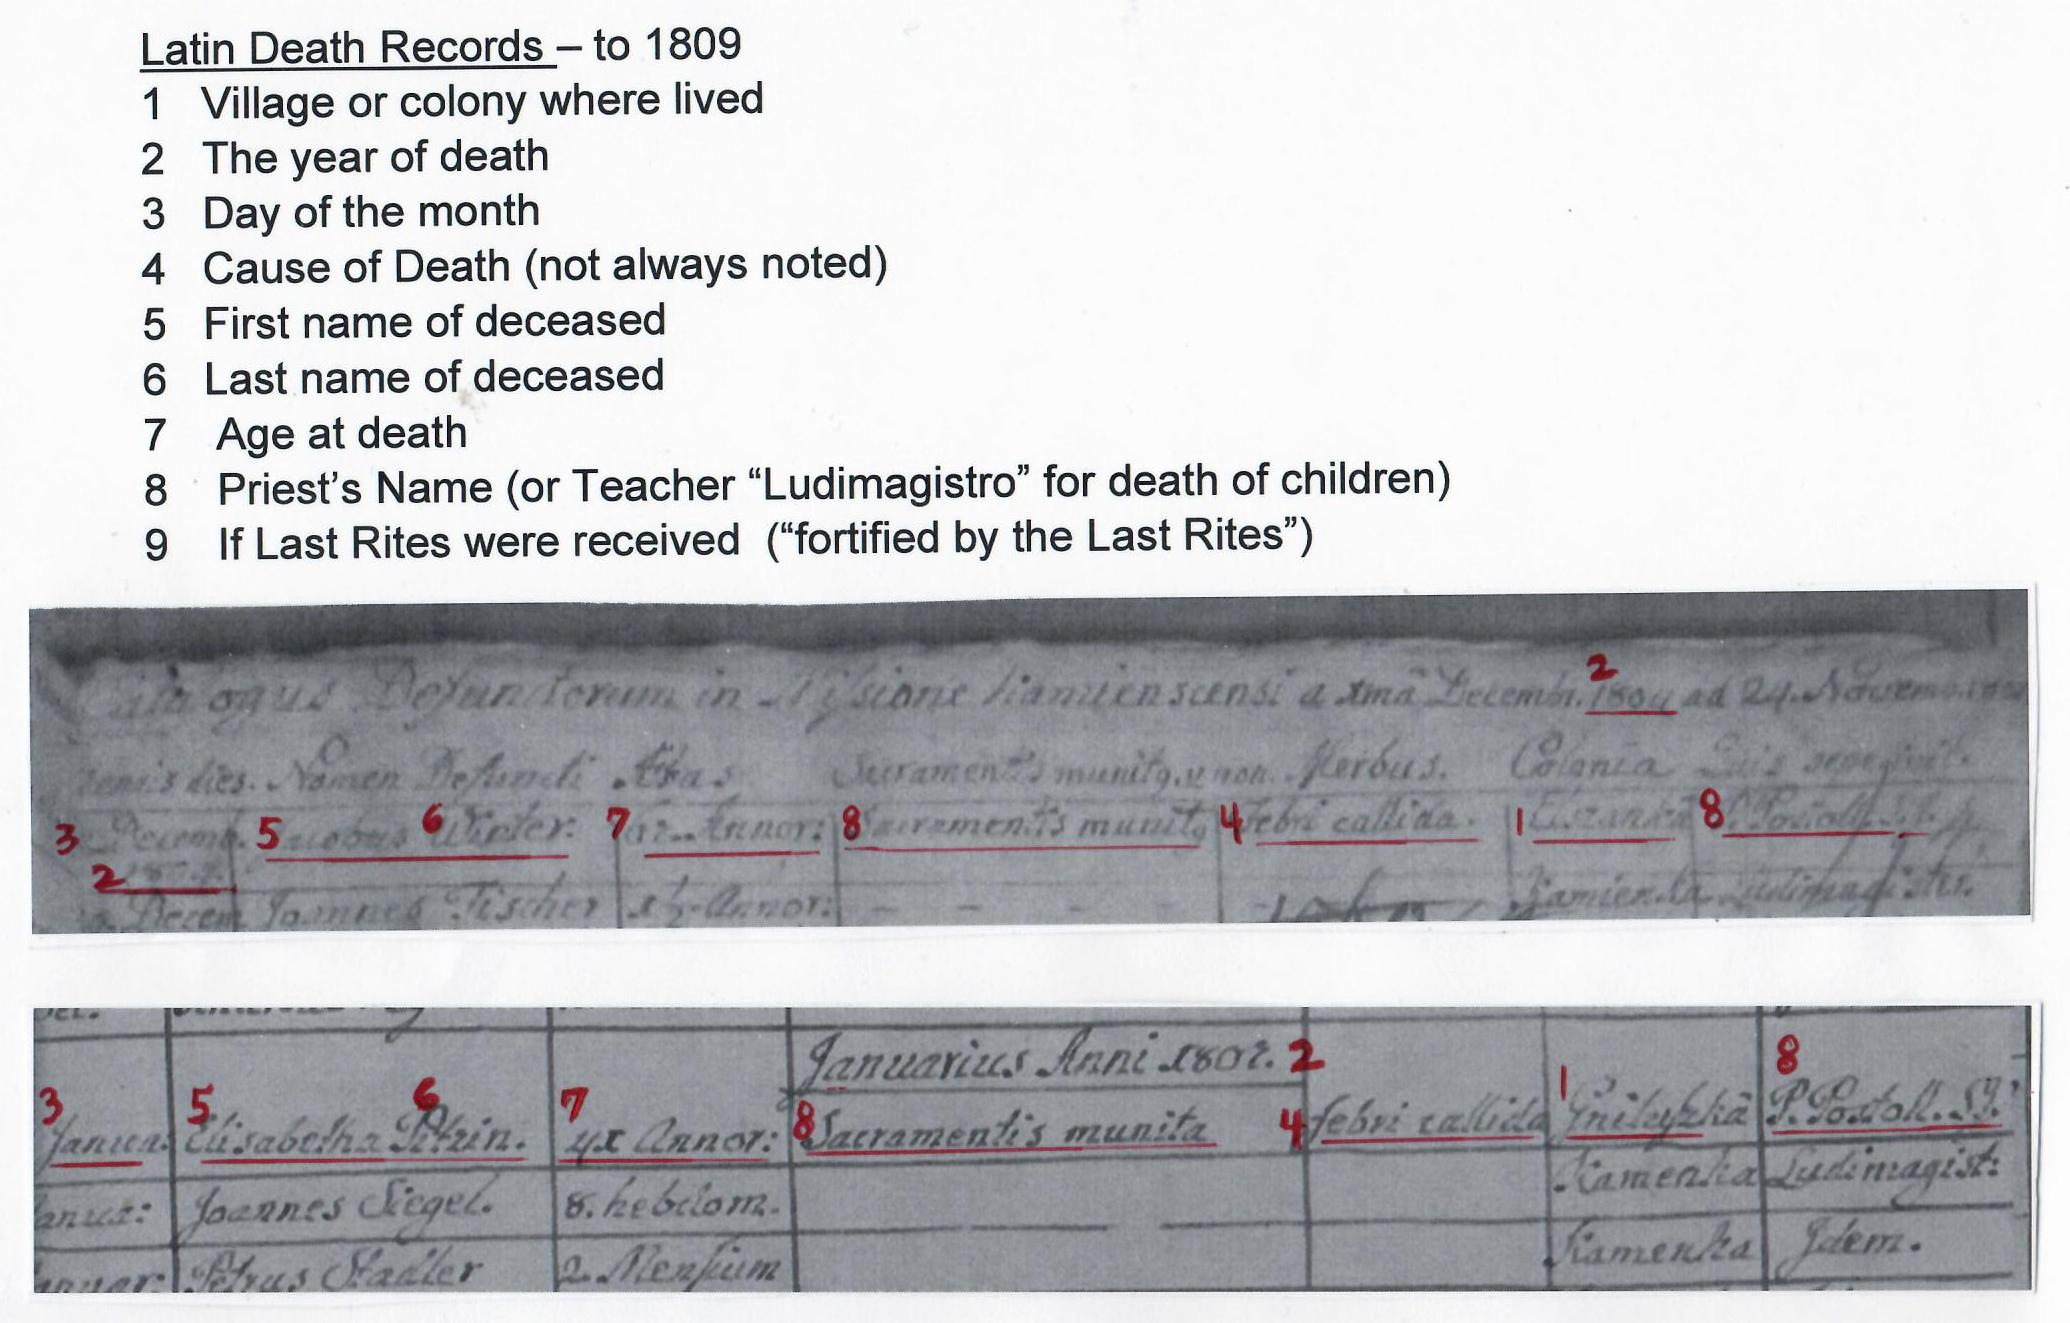 Latin Death Records – to 1809
1 Village or colony where lived
2 The year of death
3 Day of the month
4 Cause of Death (not always noted)
5 First name of deceased
6 Last name of deceased
7 Age at death
8 Priest’s Name (or Teacher “Ludimagistro” for death of children)
9 If Last Rites were received (“fortified by the Last Rites”)
2
Defunctorum in Missione a Decembr. 1804 ad 24. Novemb.
dies. Nomen Defuncti Ætas Sacramentis munitq. v non. Morbus. Colonia Quis
3 Decemb. 5 Jacobus 6 Winter: 7 Annor: 8 Sacramentis munitq 4 febri callida. 1 8 P. Postoll. S.J.
2
Decem Joannes Fischer Annor: Kamienka Ludimagister.
Januarius Anni 1802. 2
3 Januar: 5 Elisabetha 6 7 41 Annor: 8 Sacramentis munita 4 febri callida 1 8 P. Postoll. S.J.
anuar: Joannes Siegel. 8. hebdom. Kamenka Ludimagist:
anuar: Petrus Stadler 2. Mensium Kamenka Idem.